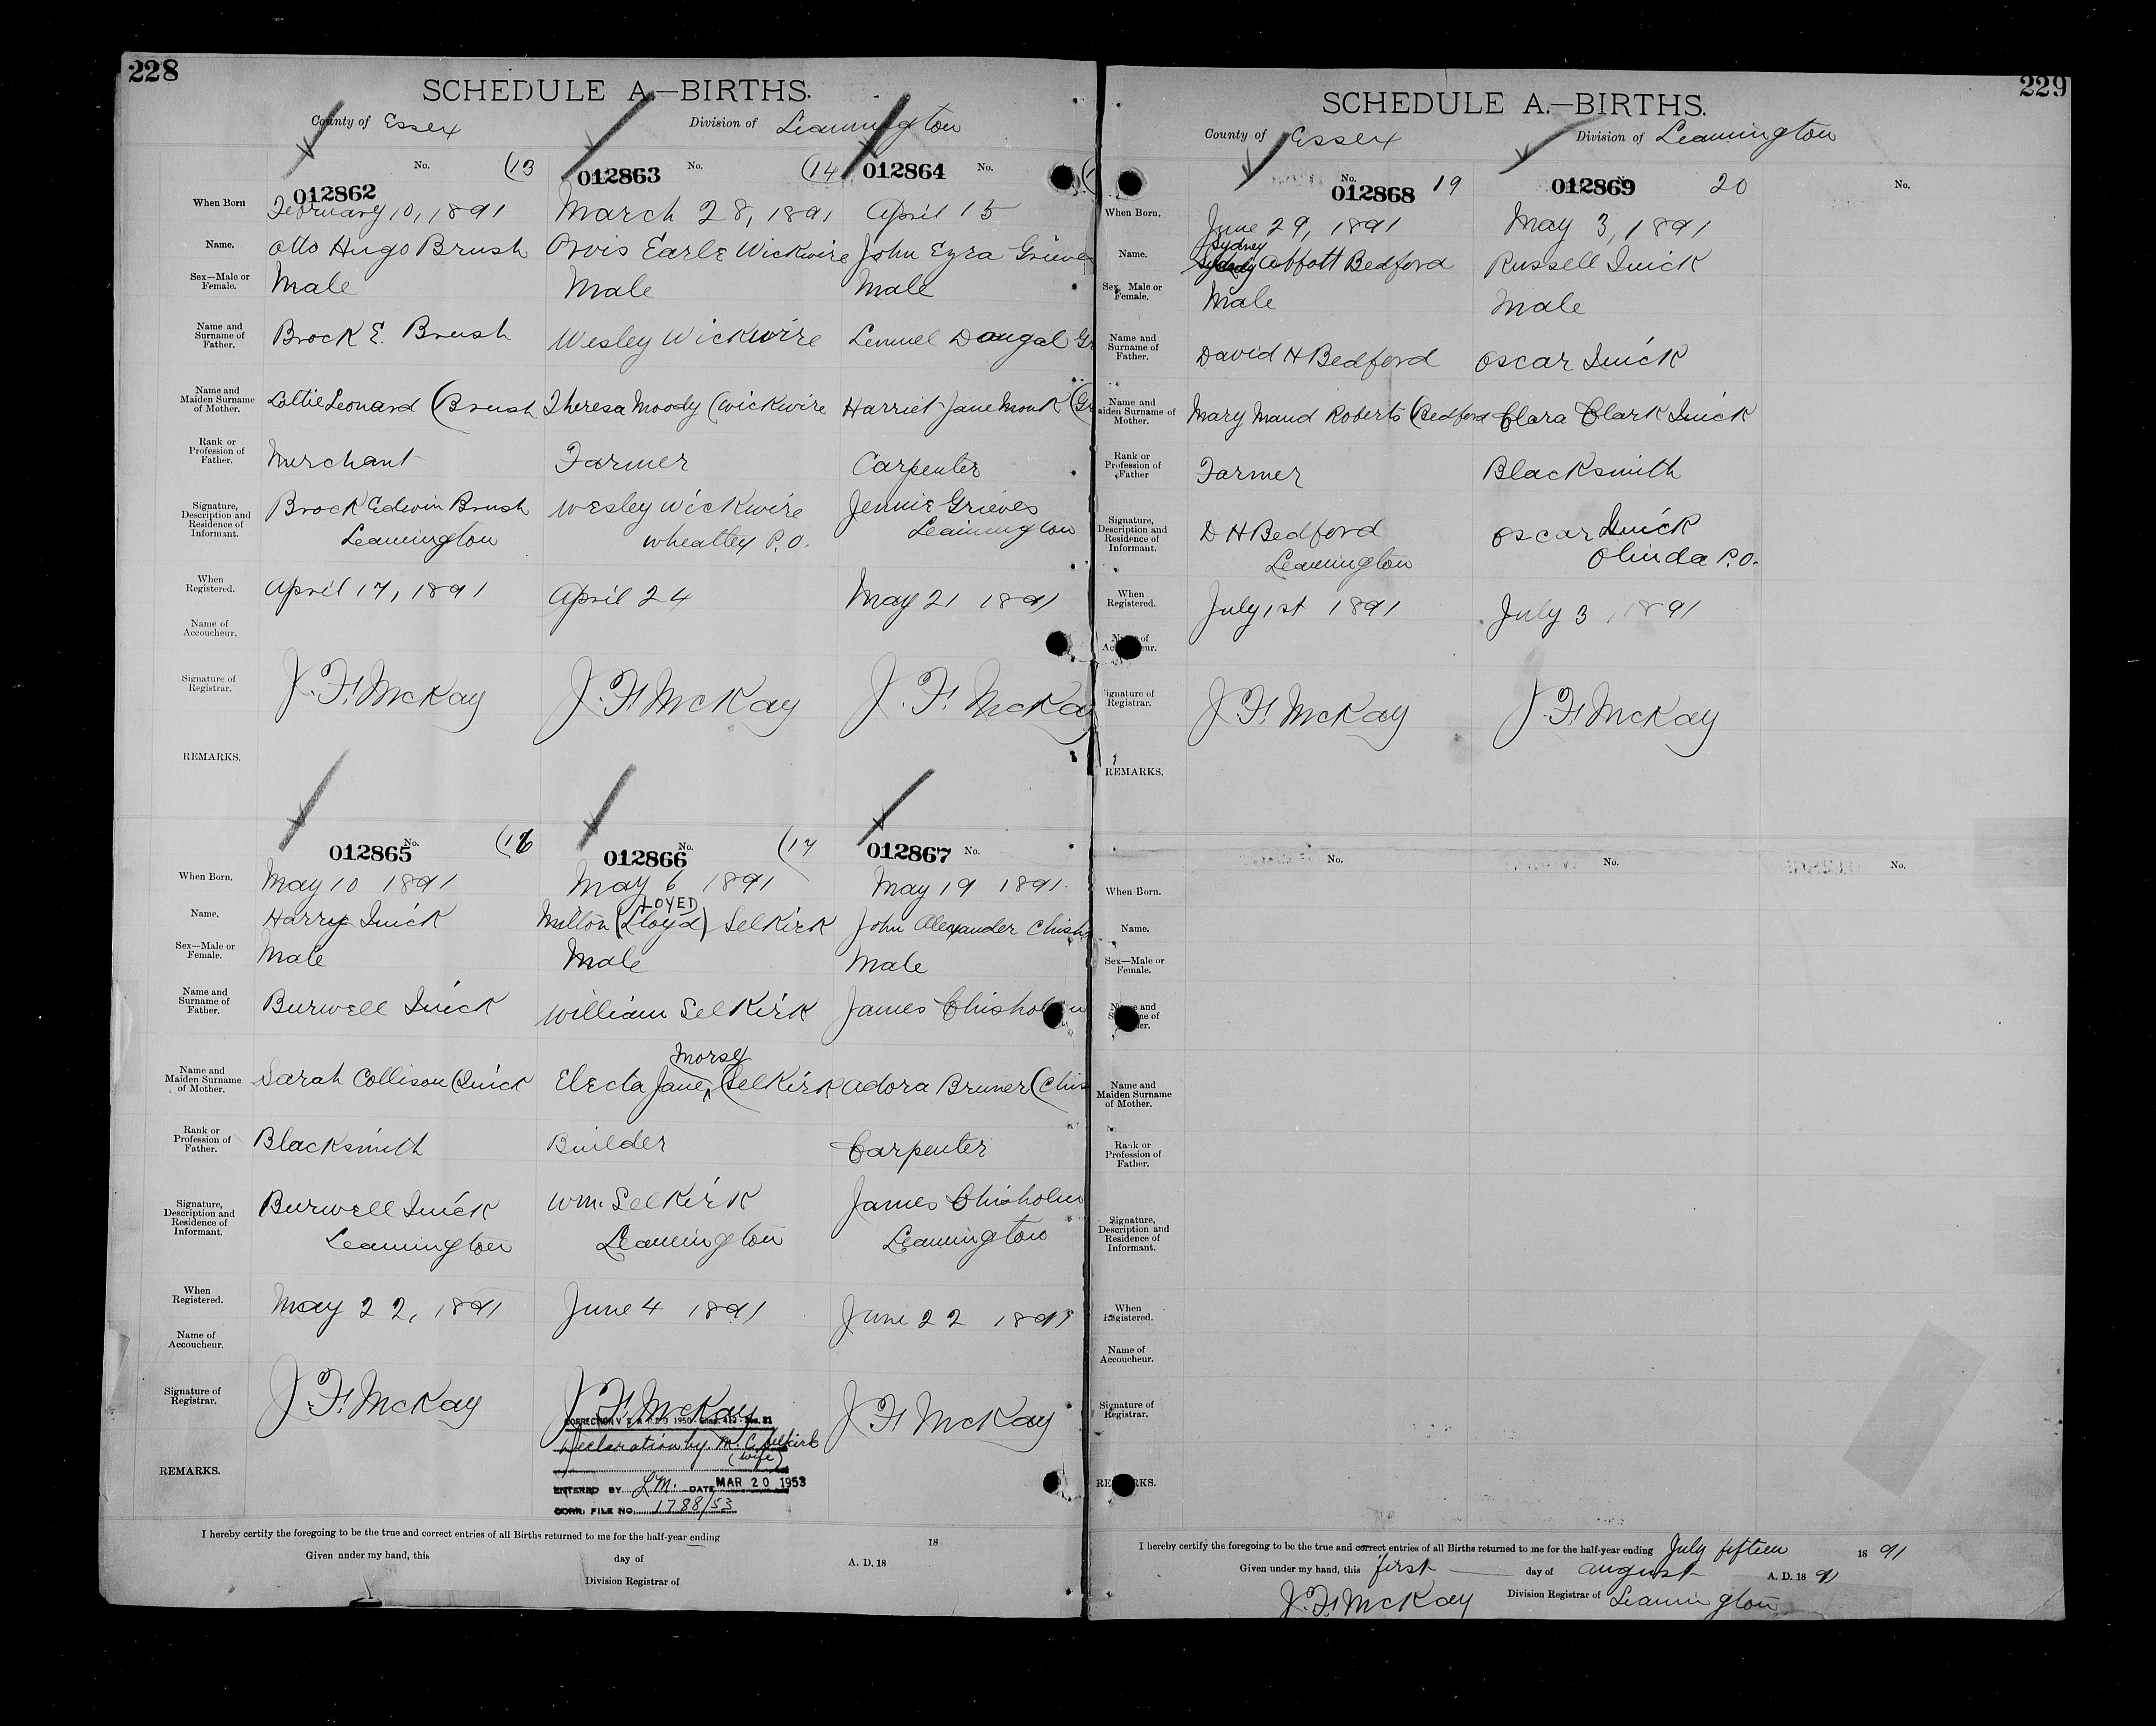 228
SCHEDULE A.—BIRTHS.
County of Essex Division of Leamington
No. (13 No. (14 No.
012862 012863 012864
When Born February 10, 1891 March 28, 1891 April 15
Name. Otto Hugo Brush Orvis Earle Wickwire John Ezra Grieves
Sex—Male or Female. Male Male Male
Name and Surname of Father. Brock E. Brush Wesley Wickwire Lemuel Dougal Gr
Name and Maiden Surname of Mother. Lottie Leonard (Brush Theresa Moody (Wickwire Harriet Jane Monk (Gr
Rank or Profession of Father. Merchant Farmer Carpenter
Signature, Description and Residence of Informant. Brock Edwin Brush Wesley Wickwire Jennie Grieves
Leamington Wheatley P.O. Leamington
When Registered. April 17, 1891 April 24 May 21 1891
Name of Accoucheur.
Signature of Registrar. J. F. McKay J. F. McKay J. F. McKay
REMARKS.
No. (16 No. (17 No.
012865 012866 012867
When Born. May 10 1891 May 6 1891 May 19 1891.
LOYED
Name. Harry Quick Milton (Lloyd) Selkirk John Alexander Chish
Sex—Male or Female. Male Male Male
Name and Surname of Father. Burwell Quick William Selkirk James Chisholm
Morse
Name and Maiden Surname of Mother. Sarah Collison (Quick Electa Jane (Selkirk Adora Bruner (Chis
Rank or Profession of Father. Blacksmith Builder Carpenter
Signature, Description and Residence of Informant. Burwell Quick Wm. Selkirk James Chisholm
Leamington Leamington Leamington
When Registered. May 22, 1891 June 4 1891 June 22 1891
Name of Accoucheur.
Signature of Registrar. J. F. McKay J. F. McKay J. F. McKay
Declaration by M. C. Selkirk
(wife)
REMARKS.
ENTERED BY L.M. DATE MAR 20 1953
CORR. FILE NO. 1788/53
I hereby certify the foregoing to be the true and correct entries of all Births returned to me for the half-year ending 18
Given under my hand, this day of A. D. 18
Division Registrar of
229
SCHEDULE A.—BIRTHS.
County of Essex Division of Leamington
No. 19 20 No.
012868 012869
When Born. June 29, 1891 May 3, 1891
Sydney
Name. Abbott Bedford Russell Quick
Sex Male or Female. Male Male
Name and Surname of Father. David H Bedford Oscar Quick
Name and aiden Surname of Mother. Mary Maud Roberts (Bedford Clara Clark Quick
Rank or Profession of Father Farmer Blacksmith
Signature, Description and Residence of Informant. D H Bedford Oscar Quick
Leamington Olinda P.O.
When Registered. July 1st 1891 July 3, 1891
Signature of Registrar. J. F. McKay J. F. McKay
REMARKS.
No. No. No.
When Born.
Name.
Sex—Male or Female.
Name and Maiden Surname of Mother.
Rank or Profession of Father.
Signature, Description and Residence of Informant.
When Registered.
Name of Accoucheur.
Signature of Registrar.
I hereby certify the foregoing to be the true and correct entries of all Births returned to me for the half-year ending July fifteen 1891
Given under my hand, this first day of August A. D. 1891
J. F. McKay Division Registrar of Leamington